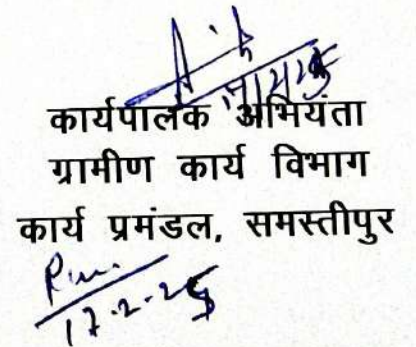 कार्यपालक अभियंता
ग्रामीण कार्य विभाग
कार्य प्रमंडल, समस्तीपुर
17.2.25